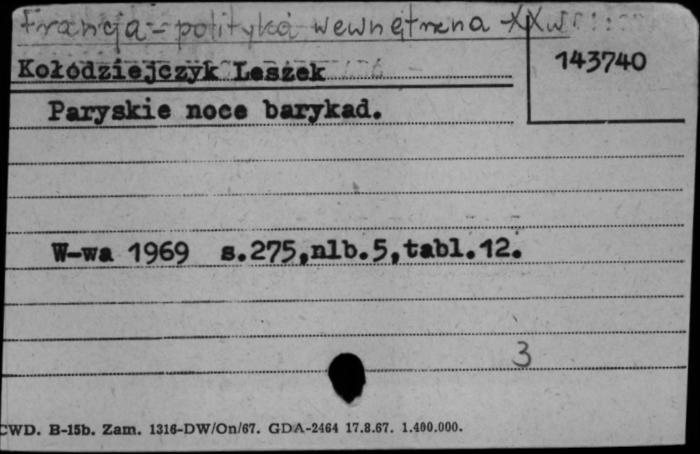 Francja - polityka wewnętrzna XXw
Kołodziejczyk Leszek
143740
Paryskie noce barykad.
W-wa 1969 s.275,nlb.5,tabl.12.
3
CWD. B-15b. Zam. 1316-DW/On/67. GDA-2464 17.8.67. 1.400.000.